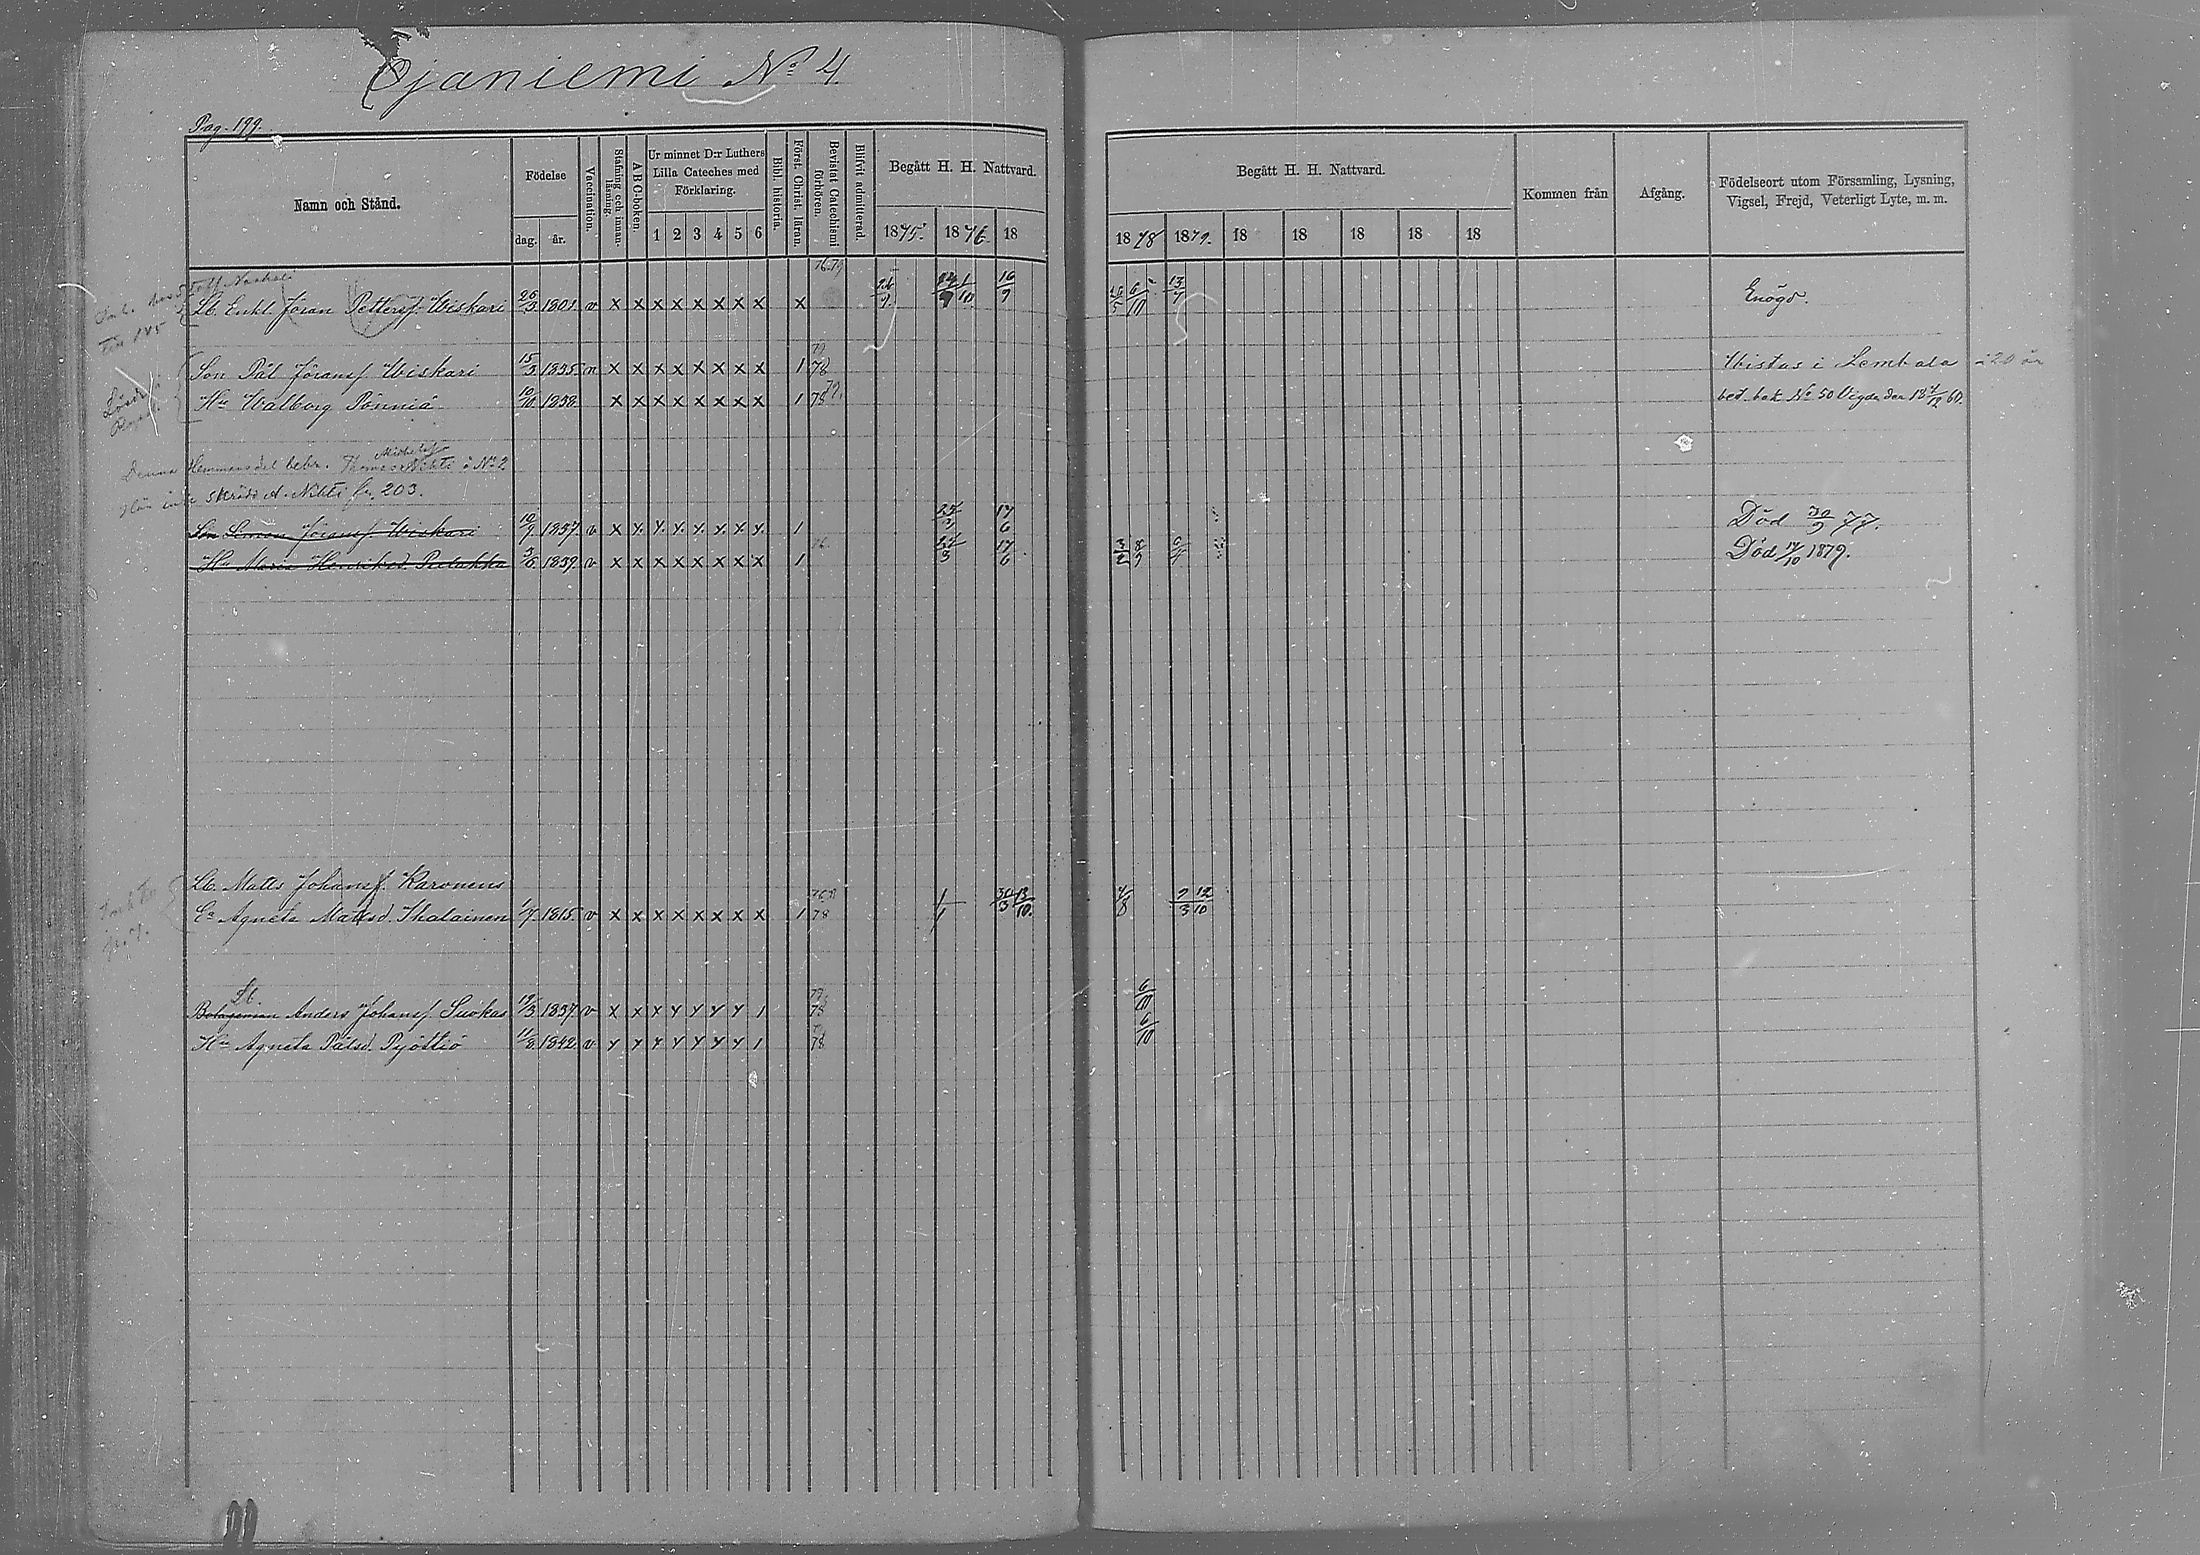 Ojaniemi No 4
Pag. 199.
Namn och Stånd.
Födelse
dag. år.
Vaccination.
Stafning och innanläsning.
A B C-boken.
Ur minnet D:r Luthers Lilla Cateches med Förklaring.
1 2 3 4 5 6
Bibl. historia.
Först. Christ. läran.
Bevistat Catechismi förhören.
Blifvit admitterad.
Begått H. H. Nattvard.
1875. 1876. 18
Begått H. H. Nattvard.
1878 1879. 18 18 18 18 18
Kommen från
Afgång.
Födelseort utom Församling, Lysning, Vigsel, Frejd, Veterligt Lyte, m. m.
76.79
Lb. Enkl. Jöran Pettersf. Wiskari 26/3 1801. v x x x x x x x x x 24/9 1/10 16/9 6/10 13/7 Enögd.
79
Son Pål Jöransf Wiskari 15/3 1835. x x x x x x x x 1 78 Wistas i Lembala i 20 år
Hu Walborg Pönniä 10/10 1838. x x x x x x x x 1 78 79. bet. bok No 50 Vigde den 18 /12 60.
Michelsf
Denna Hemmansdel bebr. Thomas Nihti å No 2
203.
Son Simon Jöransf Wiskari 10/9 1837. v x x x x x x x x 1 17/6 Död 30/9 77.
Hu Maria Henriksd. 3/6 1839. v x x x x x x x x 1 17/6 3/2 8/9 6/4 Död 14/10 1879.
Lb. Matts Johansf. Karonens
Ea Agneta Mattsd. Ihalainen 1/7 1815. v x x x x x x x x 1 78 1/1 30/3 13/10. 4/8 9/3 12/10
Lb.
Bolagsman Anders Johansf. Suokas 19/3 1837. v x x x y y y y 1 79 78 6/10
Hu Agneta Pålsd. Pyöttiö 11/8 1842. v y y y y y y y 1 78 6/10